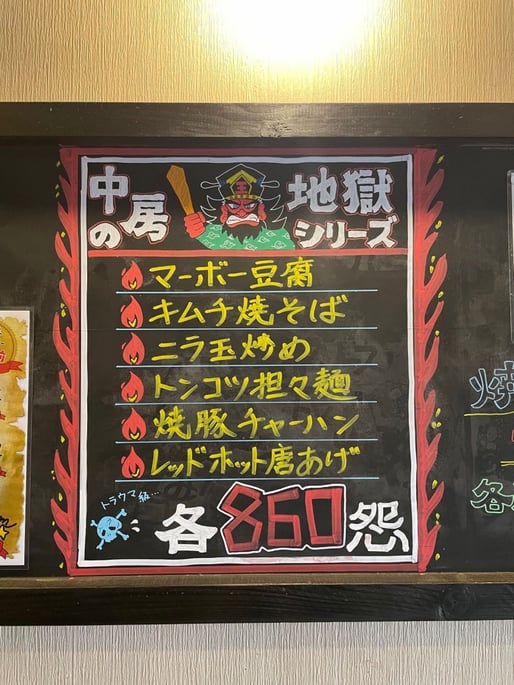 中房の
地獄シリーズ
王
マーボー豆腐
キムチ焼そば
ニラ玉炒め
トンコツ担々麺
焼豚チャーハン
レッドホット唐あげ
トラウマ級…
各860怨
焼
各